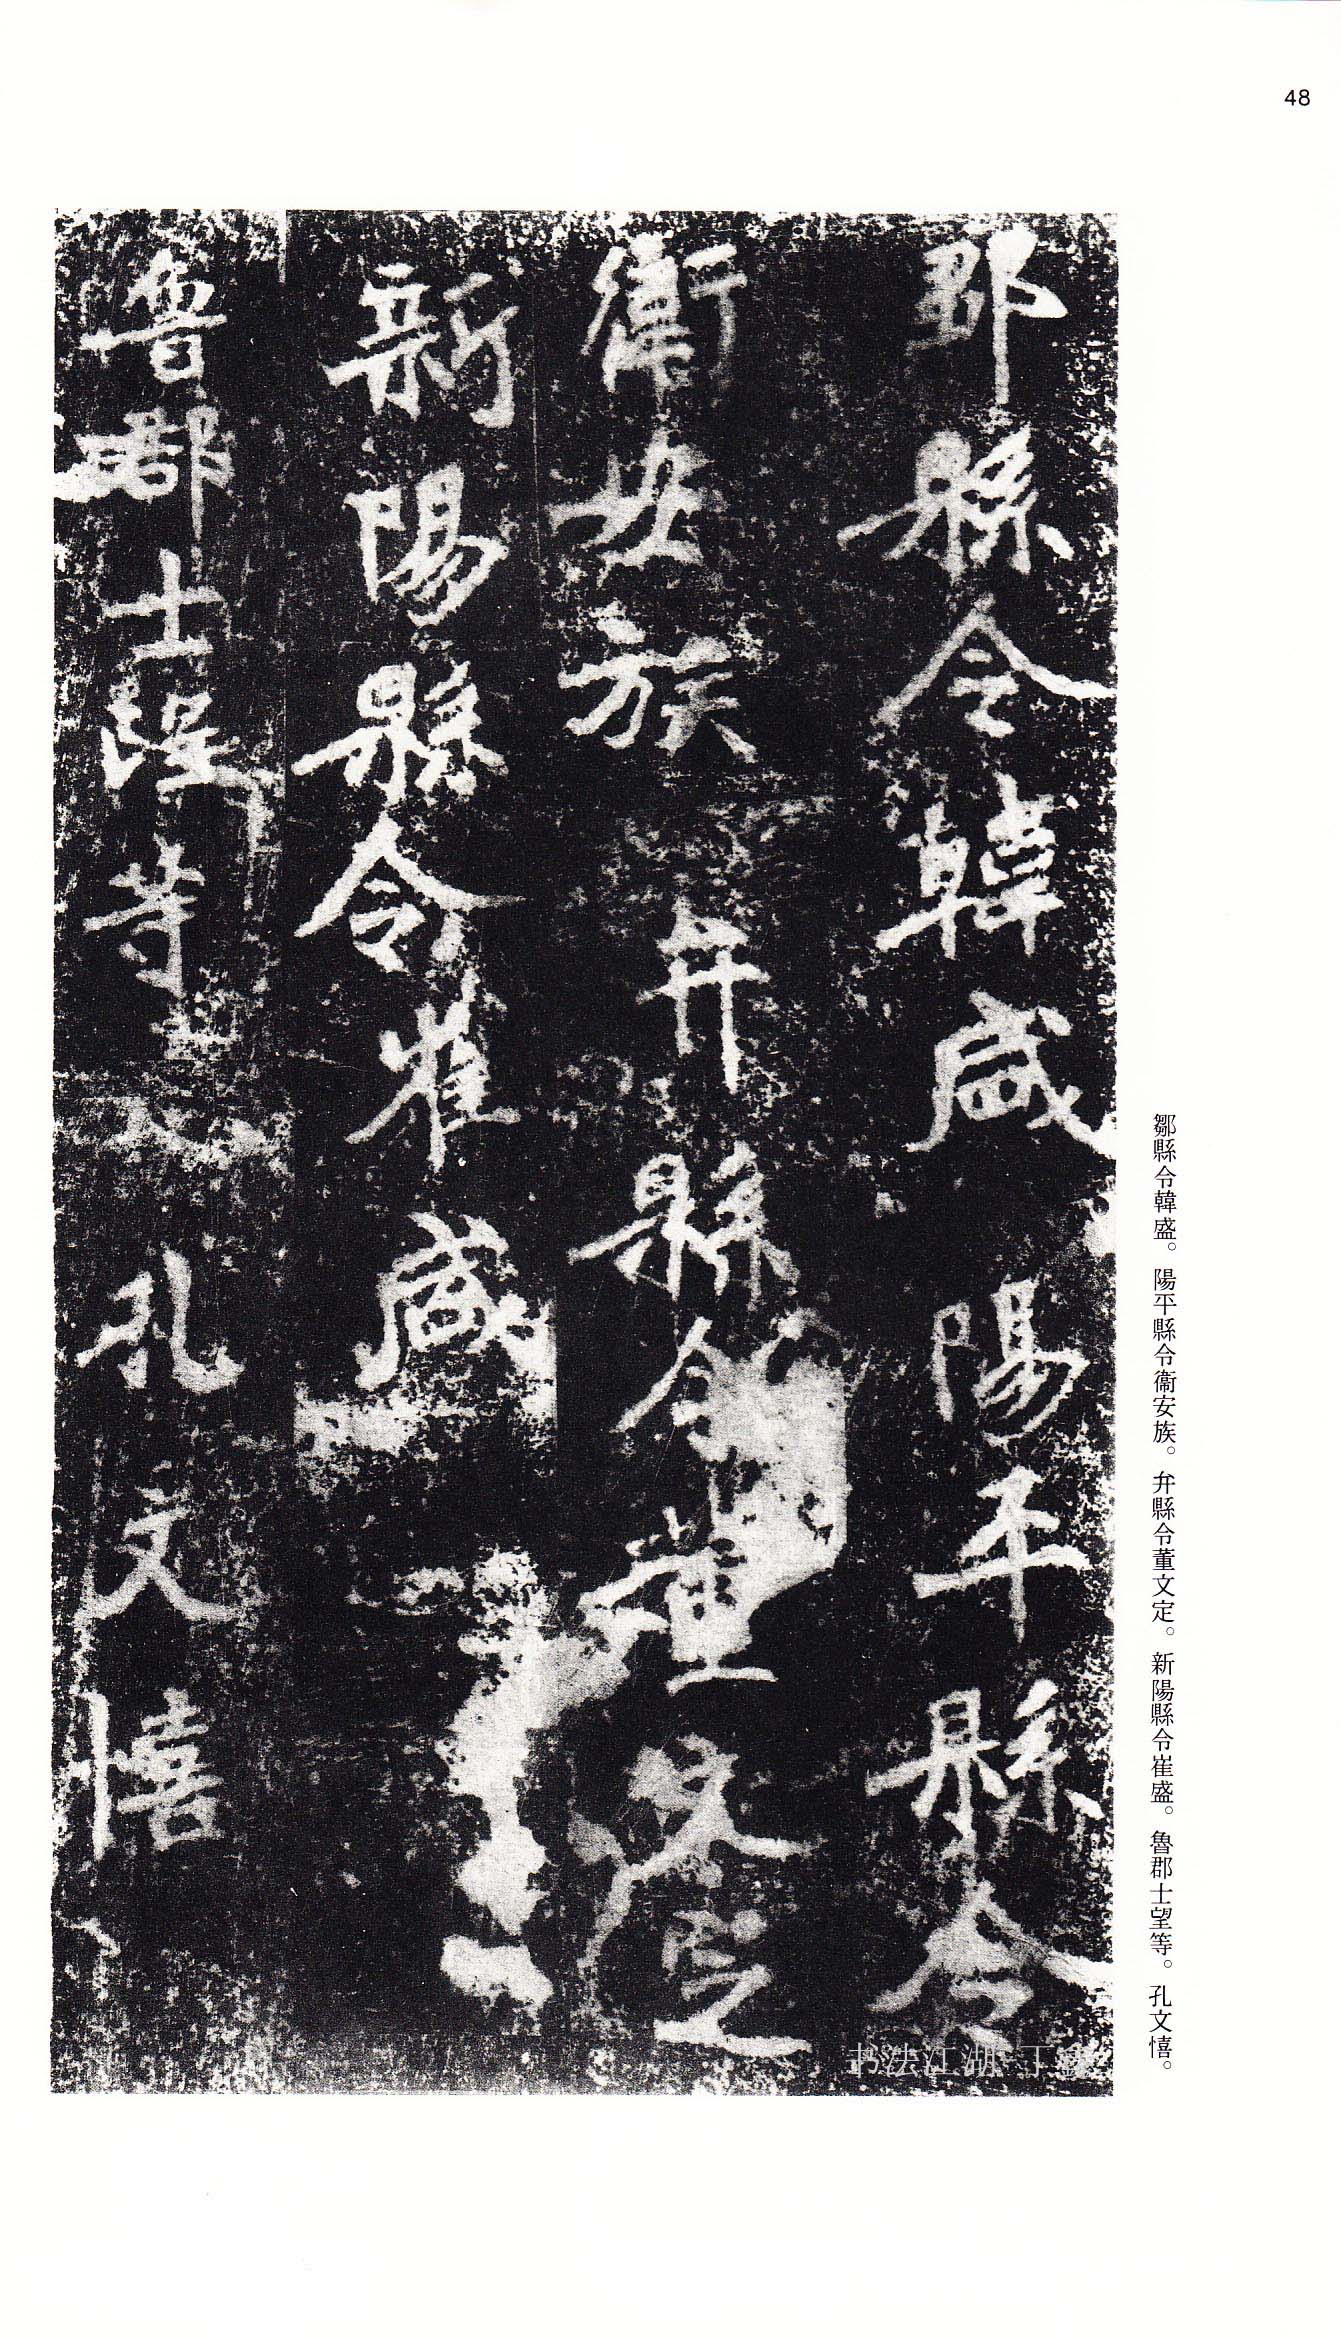 48
鄒縣令韓盛。陽平縣令衞安族。弁縣令董文定。新陽縣令崔盛。魯郡士望等。孔文憘。
鄒縣令韓盛陽平縣令
衞安族弁縣令董文定
新陽縣令崔盛
魯郡士望等孔文憘
书法江湖